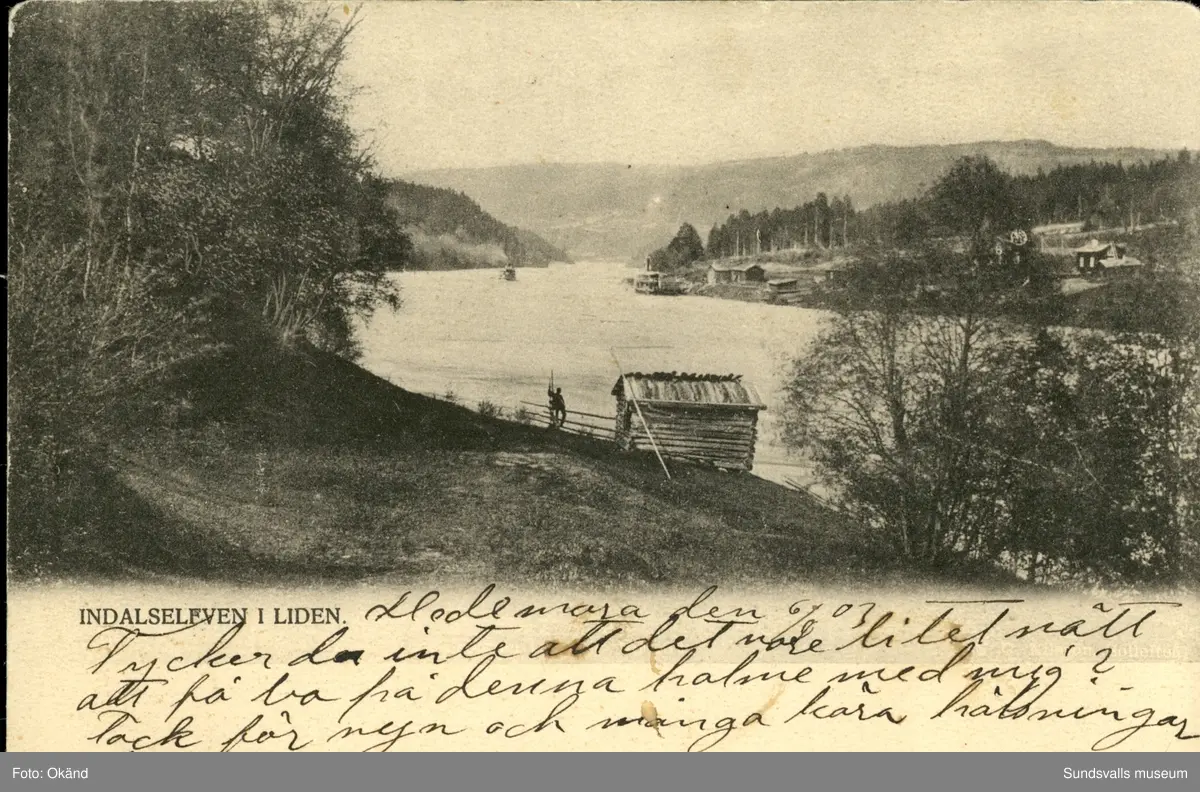 INDALSELFVEN I LIDEN. Hedemora den 6/9 03
Tycker du inte att det vore litet nätt
att få bo på denna holme med mig?
Tack för vyn och många kära hälsningar
Foto: Okänd
Sundsvalls museum